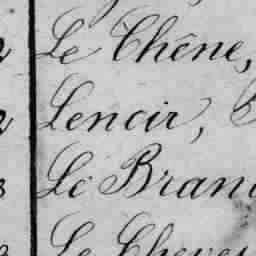 Le Chêne,
Lenoir,
Le Bran
Le Cheve